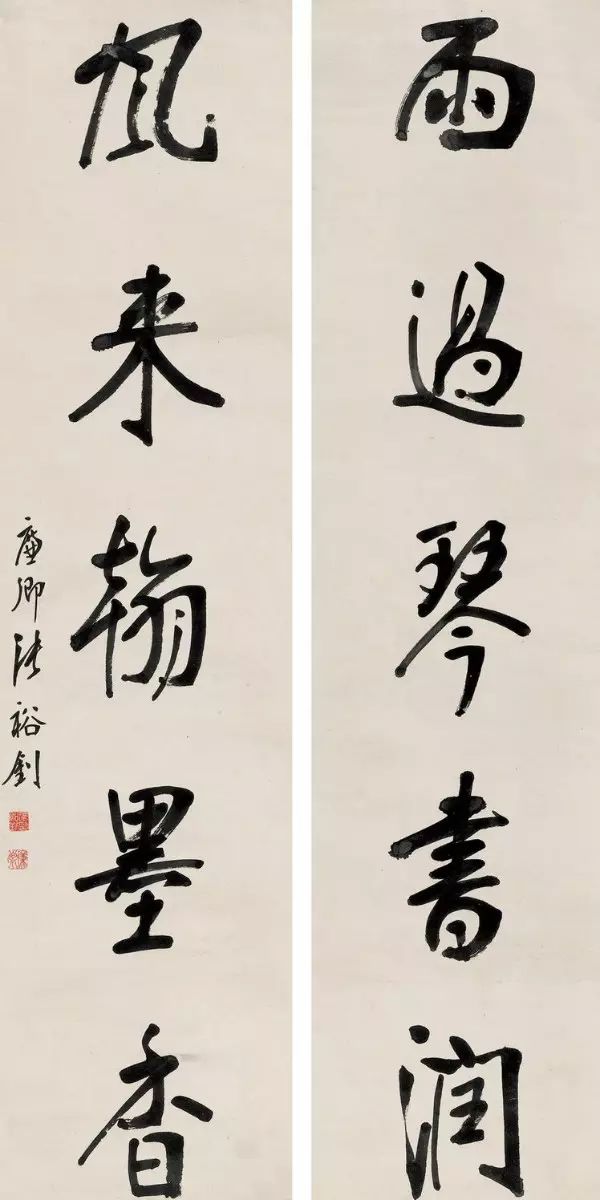 雨過琴書潤
風来翰墨香
廉卿張裕釗